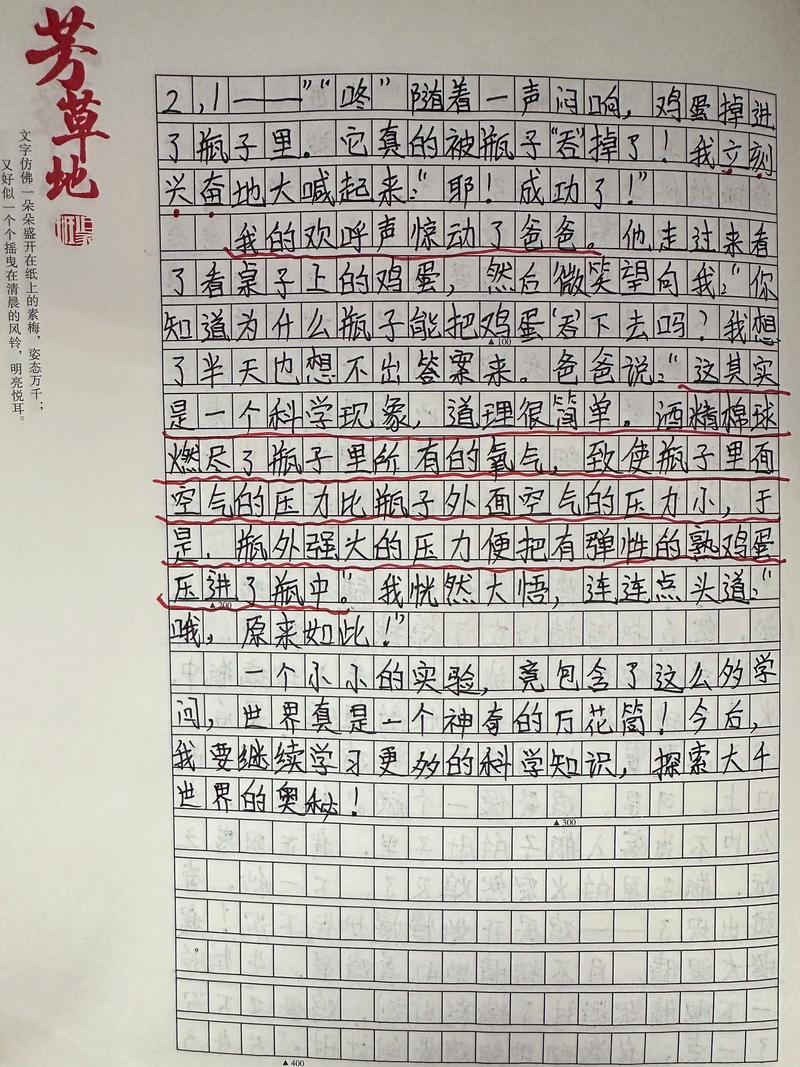 芳草地
文字仿佛一朵朵盛开在纸上的素梅，姿态万千；
又好似一个个摇曳在清晨的风铃，明亮悦耳。
2，1——”“咚”随着一声闷响，鸡蛋掉进
了瓶子里。它真的被瓶子“吞”掉了！我立刻
兴奋地大喊起来：“耶！成功了！”
我的欢呼声惊动了爸爸。他走过来看
了看桌子上的鸡蛋，然后微笑望向我：“你
知道为什么瓶子能把鸡蛋“吞”下去吗？我想
▲100
了半天也想不出答案来。爸爸说：“这其实
是一个科学现象，道理很简单。酒精棉球
燃尽了瓶子里所有的氧气，致使瓶子里面
空气的压力比瓶子外面空气的压力小，于
是，瓶外强大的压力便把有弹性的熟鸡蛋
压进了瓶中”。我恍然大悟，连连点头道：“
▲200
哦，原来如此！”
一个小小的实验，竟包含了这么多学
问，世界真是一个神奇的万花筒！今后，
我要继续学习更多的科学知识，探索大千
世界的奥秘！
▲300
▲400